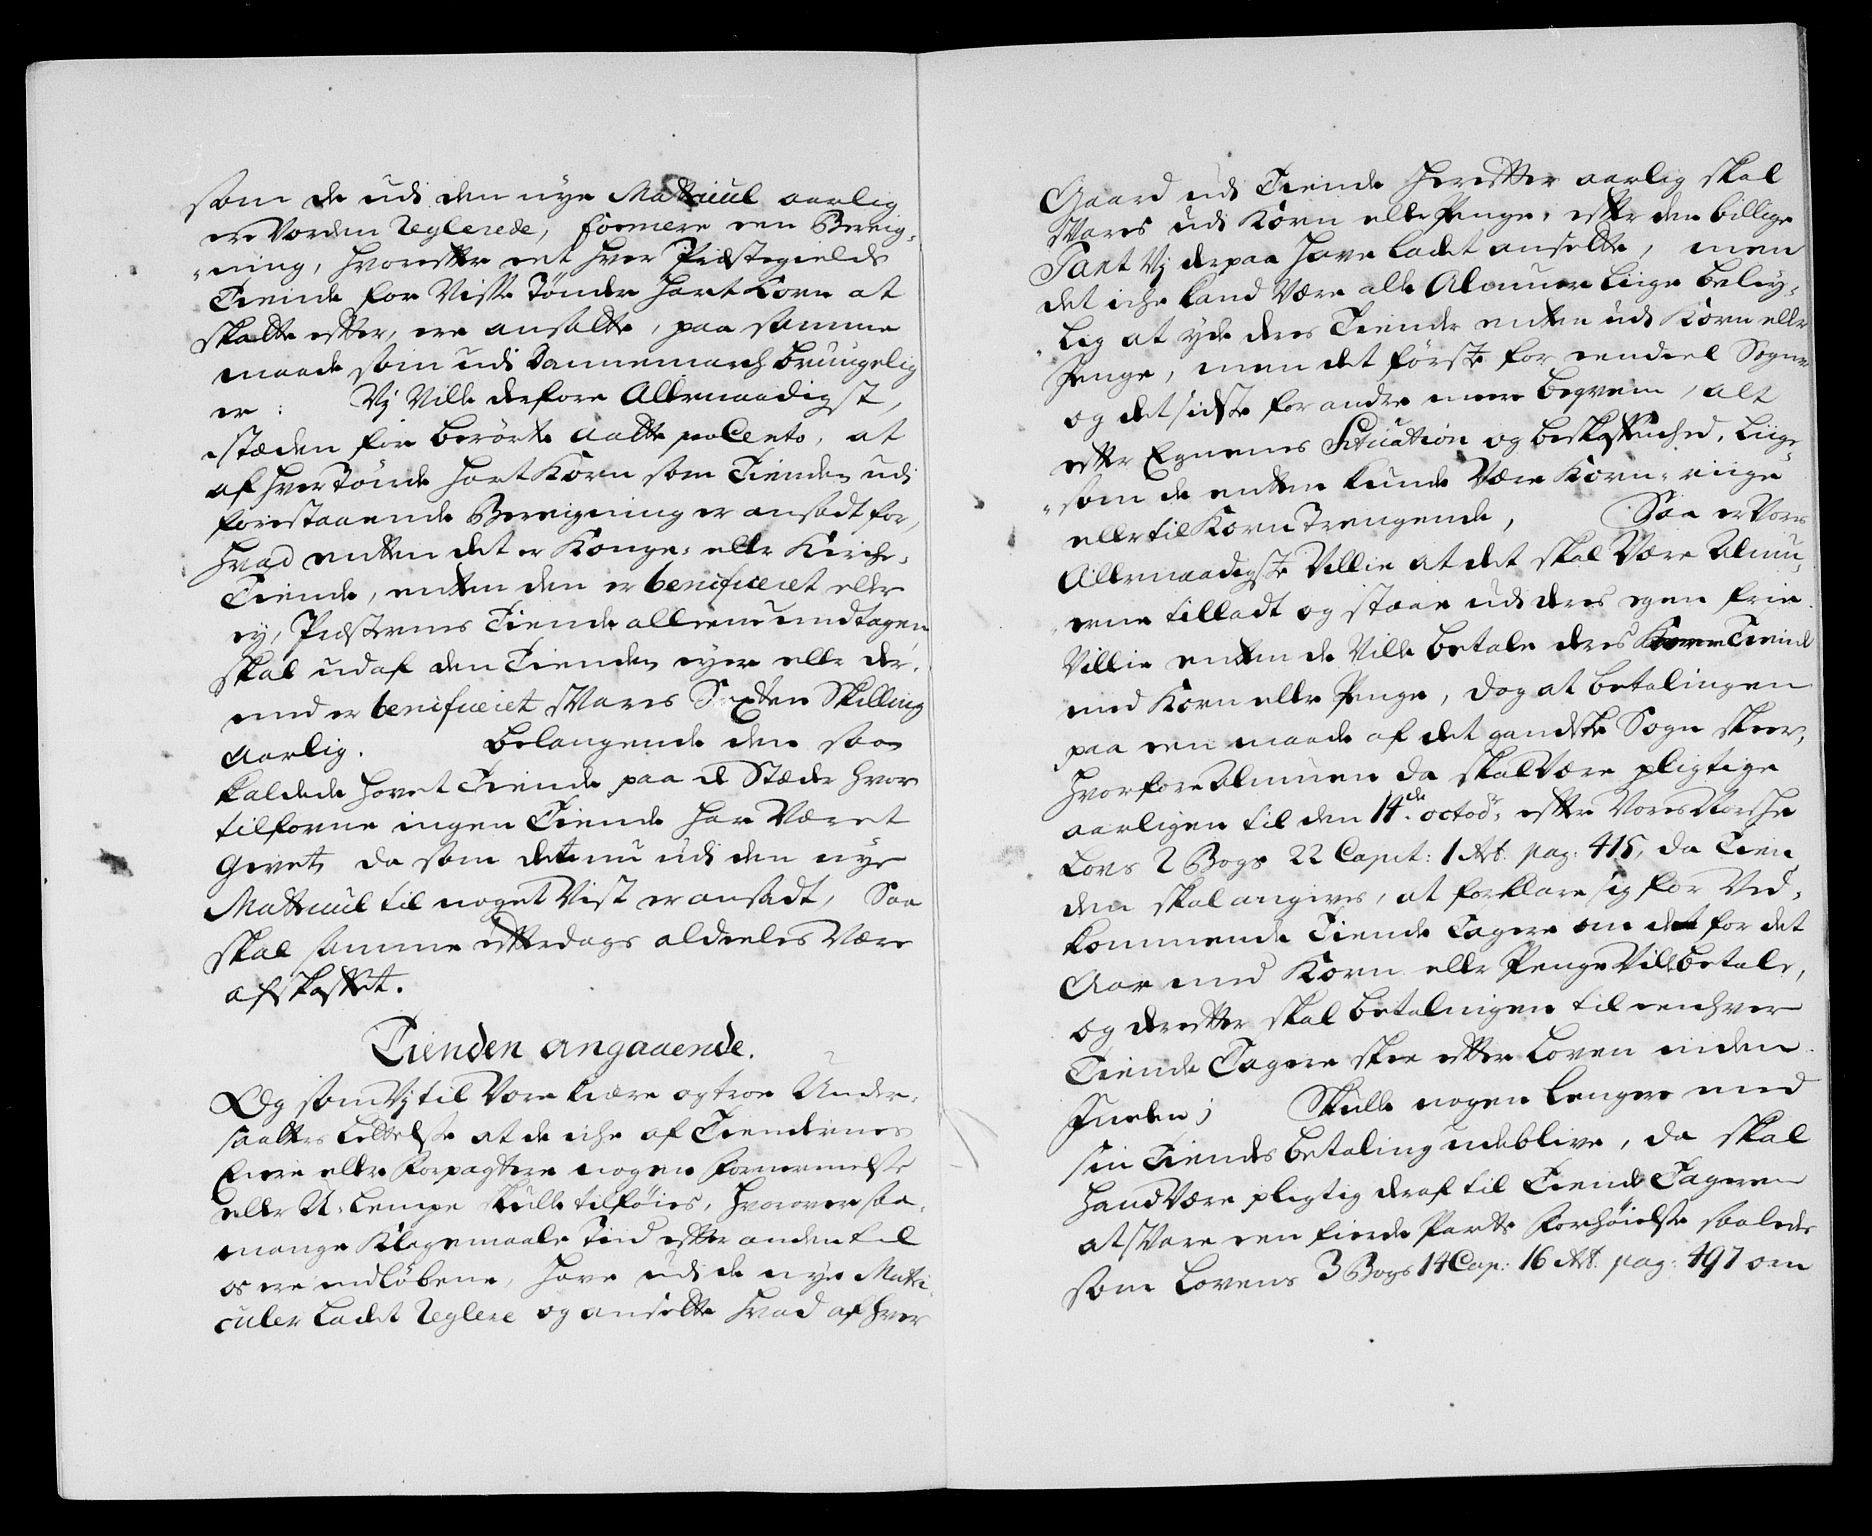 som de udi den nye Matricul aarlig
ere Vorden Reglerede, formere een Bereig-
ning, hvorefter eet hver Præstegields
Tiende for Visse Tønder Hart Korn at
skatte efter, ere ansatte, paa samme
maade som udi Dannemarch bruugelig
er: Vj Ville derfore Allernaadigst,
istæden for berørte Aatte pro Cento, at
af hver Tønde Hart Korn som Tienden udi
forestaaende Bereigning er ansadt for,
hvad enten det er Konge- eller Kirche-
Tiende, enten den er beneficeret eller
ey, Præsternes Tiende alleene undtagen
skal udaf den Tienden eyer eller der-
med er beneficeret Svares Sexten Skilling
Aarlig. Belangende den saa
kaldede Hovet Tiende paa de Stæder hvor
tilforne ingen Tiende har Været
Givet, da som det nu udi den nye
Matricul til noget Vist er ansadt, Saa
skal samme efterdags aldeeles Være
afskaffet.
Tienden angaaende.
Og som Vj til Vore kiære og troe Under-
saatters Lettelse at de iche af Tiendernes
Eiere eller Forpagtere nogen Fornermelse
eller U-lempe skulle tilføies, hvorover saa
mange Klagemaale Tiid efter anden til
os ere indløbene, have udi de nye Matri-
culer Ladet Reglere og ansætte hvad af hver
Gaard udi Tiende herefter aarlig skal
Svares udi Korn eller Penge, efter den billige
Taxt Vj derpaa have Ladet ansætte, men
det iche kand Være alle Almuer Liige beley-
lig at yde deres Tiende enten udi Korn eller
Penge, men det første for eendeel Sogner
og det sidste for andre meer beqvem, alt
efter Egnenes Situation og beskaffenhed, Liige
som de enten kunde Være Korn-riige
eller til Korn Trengende, Saa er Vores
Allernaadigste Villie at det skal Være Almu-
erne tilladt og staae udi deres egen frie
Villie enten de Ville betale deres Korn Tiende
med Korn eller Penge, dog at betalingen
paa een maade af det gandske Sogn skeer,
hvorfore Almuen da skal Være pligtige
aarligen til den 14de octobr: efter Vores Norske
Lovs 2 Bogs 22 Capit: 1 Art. pag: 415, da Tien
den skal angives, at forklare sig for Ved-
kommende Tiende Tagere om de for det
Aar med Korn eller Penge Ville betale,
og derefter skal betalningen til eenhver
Tiende Tagere skee efter Loven inden
Juelen; Skulle nogen Lenger med
sin Tiendes betaling udeblive, da skal
hand Være pligtig deraf til Tiende Tageren
at Svare een fierde Parts Forhøielse saaledes
som Lovens 3 Bogs 14 Cap: 16 Art. pag: 497 om